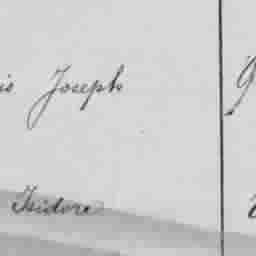 Joseph
Isidore